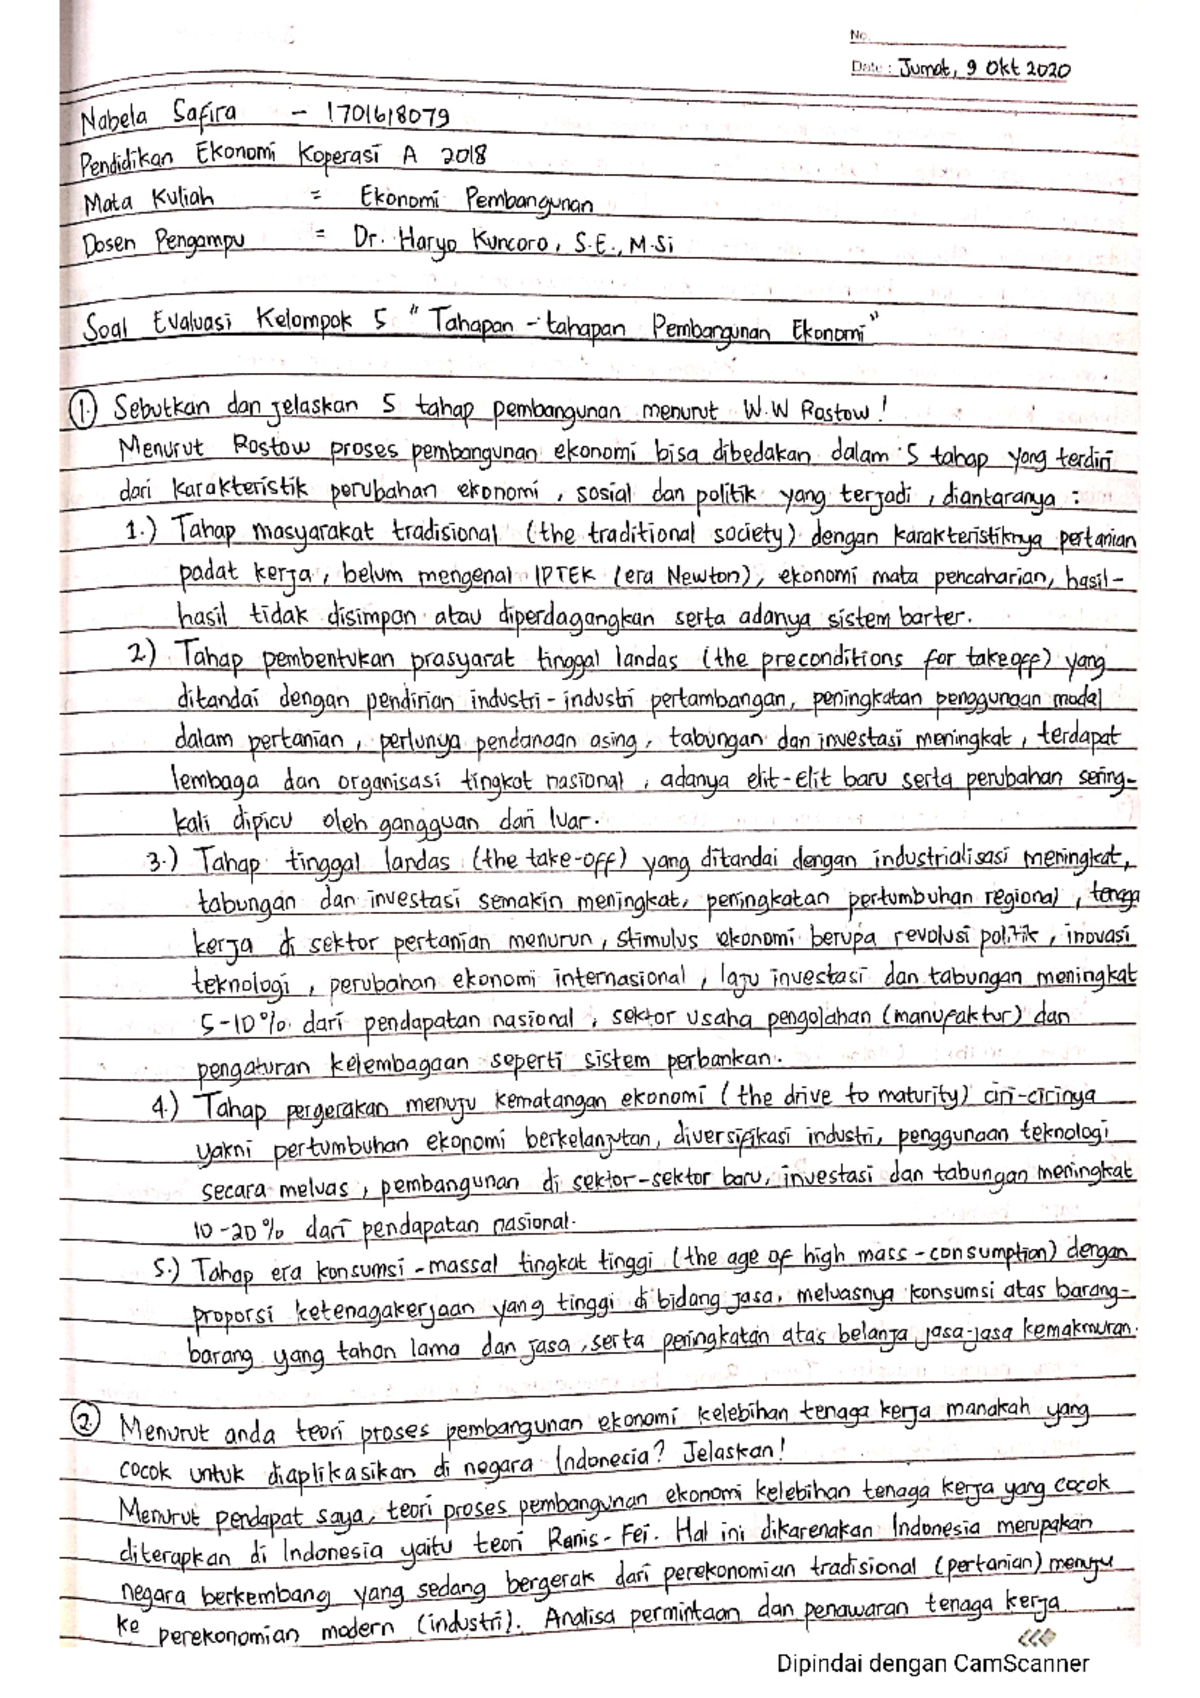 No.
Date : Jumat, 9 Okt 2020
Nabela Safira - 1701618079
Pendidikan Ekonomi Koperasi A 2018
Mata Kuliah = Ekonomi Pembangunan
Dosen Pengampu = Dr. Haryo Kuncoro, S.E., M.Si
Soal Evaluasi Kelompok 5 "Tahapan-tahapan Pembangunan Ekonomi"
1.) Sebutkan dan jelaskan 5 tahap pembangunan menurut W.W Rostow!
Menurut Rostow proses pembangunan ekonomi bisa dibedakan dalam 5 tahap yang terdiri
dari karakteristik perubahan ekonomi, sosial dan politik yang terjadi, diantaranya :
1.) Tahap masyarakat tradisional (the traditional society) dengan karakteristiknya pertanian
padat kerja, belum mengenal IPTEK (era Newton), ekonomi mata pencaharian, hasil-
hasil tidak disimpan atau diperdagangkan serta adanya sistem barter.
2.) Tahap pembentukan prasyarat tinggal landas (the preconditions for takeoff) yang
ditandai dengan pendirian industri-industri pertambangan, peningkatan penggunaan modal
dalam pertanian, perlunya pendanaan asing, tabungan dan investasi meningkat, terdapat
lembaga dan organisasi tingkat nasional, adanya elit-elit baru serta perubahan sering-
kali dipicu oleh gangguan dari luar.
3.) Tahap tinggal landas (the take-off) yang ditandai dengan industrialisasi meningkat,
tabungan dan investasi semakin meningkat, peningkatan pertumbuhan regional, tenaga
kerja di sektor pertanian menurun, stimulus ekonomi berupa revolusi politik, inovasi
teknologi, perubahan ekonomi internasional, laju investasi dan tabungan meningkat
5-10% dari pendapatan nasional, sektor usaha pengolahan (manufaktur) dan
pengaturan kelembagaan seperti sistem perbankan.
4.) Tahap pergerakan menuju kematangan ekonomi (the drive to maturity) ciri-cirinya
yakni pertumbuhan ekonomi berkelanjutan, diversifikasi industri, penggunaan teknologi
secara meluas, pembangunan di sektor-sektor baru, investasi dan tabungan meningkat
10-20% dari pendapatan nasional.
5.) Tahap era konsumsi-massal tingkat tinggi (the age of high mass-consumption) dengan
proporsi ketenagakerjaan yang tinggi di bidang jasa, meluasnya konsumsi atas barang-
barang yang tahan lama dan jasa, serta peringkatan atas belanja jasa-jasa kemakmuran.
2. Menurut anda teori proses pembangunan ekonomi kelebihan tenaga kerja manakah yang
cocok untuk diaplikasikan di negara Indonesia? Jelaskan!
Menurut pendapat saya, teori proses pembangunan ekonomi kelebihan tenaga kerja yang cocok
diterapkan di Indonesia yaitu teori Ranis-Fei. Hal ini dikarenakan Indonesia merupakan
negara berkembang yang sedang bergerak dari perekonomian tradisional (pertanian) menuju
ke perekonomian modern (industri). Analisa permintaan dan penawaran tenaga kerja
Dipindai dengan CamScanner